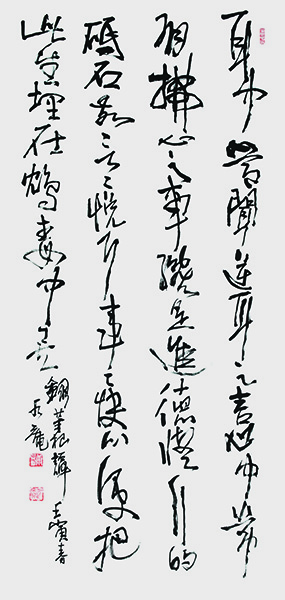 耳中常聞逆耳之言心中常
有拂心之事纔是進德修行的
砥石若言々悅耳事々快心便把
此生埋在鴆毒中矣
錄菜根譚 壬寅春
龍